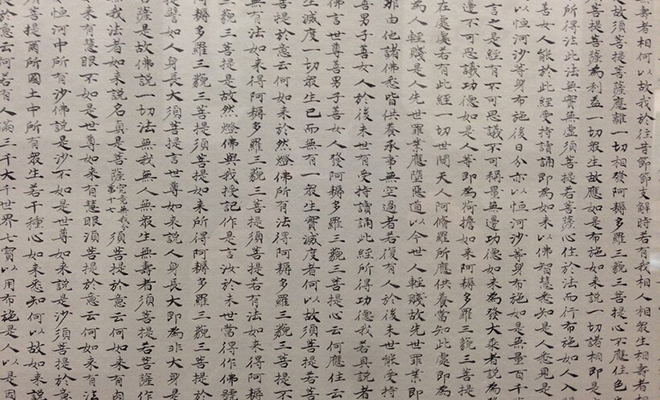 壽者相何以故我於往昔節節支解時若有我相人相眾生相壽者相
故須菩提菩薩應離一切相發阿耨多羅三藐三菩提心不應住色
須菩提菩薩為利益一切眾生故應如是布施如來說一切諸相即是
法此法無實無虛須菩提若菩薩心住於法而行布施如人入
善女人能於此經受持讀誦即為如來以佛智慧悉知是人悉見是
以恒河沙等身布施後日分亦以恒河沙等身布施如是無量百千
言之是經有不可思議不可稱量無邊功德如來為發大乘者說為
邊不可思議功德如是人等即為荷擔如來阿耨多羅三藐三菩提
在處處若有此經一切世間天人阿脩羅所應供養當知此處即
為人輕賤是人先世罪業應墮惡道以今世人輕賤故先世罪業即
那由他諸佛悉皆供養承事無空過者若復有人於後末世能受持
善男子善女人於後末世有受持讀誦此經所得功德我若具說者
佛言世尊善男子善女人發阿耨多羅三藐三菩提心云何應住云
生滅度一切眾生已而無有一眾生實滅度者何以故須菩提若菩
提於意云何如來於然燈佛所有法得阿耨多羅三藐三菩提不
有法如來得阿耨多羅三藐三菩提須菩提若有法如來得阿耨
三藐三菩提是故然燈佛與我授記作是言汝於來世當得作佛號
阿耨多羅三藐三菩提須菩提如來所得阿耨多羅三藐三菩提
提譬如人身長大須菩提言世尊如來說人身長大即為非大身是
菩薩是故佛說一切法無我無人無眾生無壽者須菩提若菩薩作
無我法者如來說名真是菩薩究竟無我分第十七須菩提於意云何如來有肉
來有慧眼不如是世尊如來有慧眼須菩提於意云何如來有法
恒河中所有沙佛說是沙不如是世尊如來說是沙須菩提於意
提爾所國土中所有眾生若干種心如來悉知何以故如來說
於意云何若有人滿三千大千世界七寶以用布施是人以是因